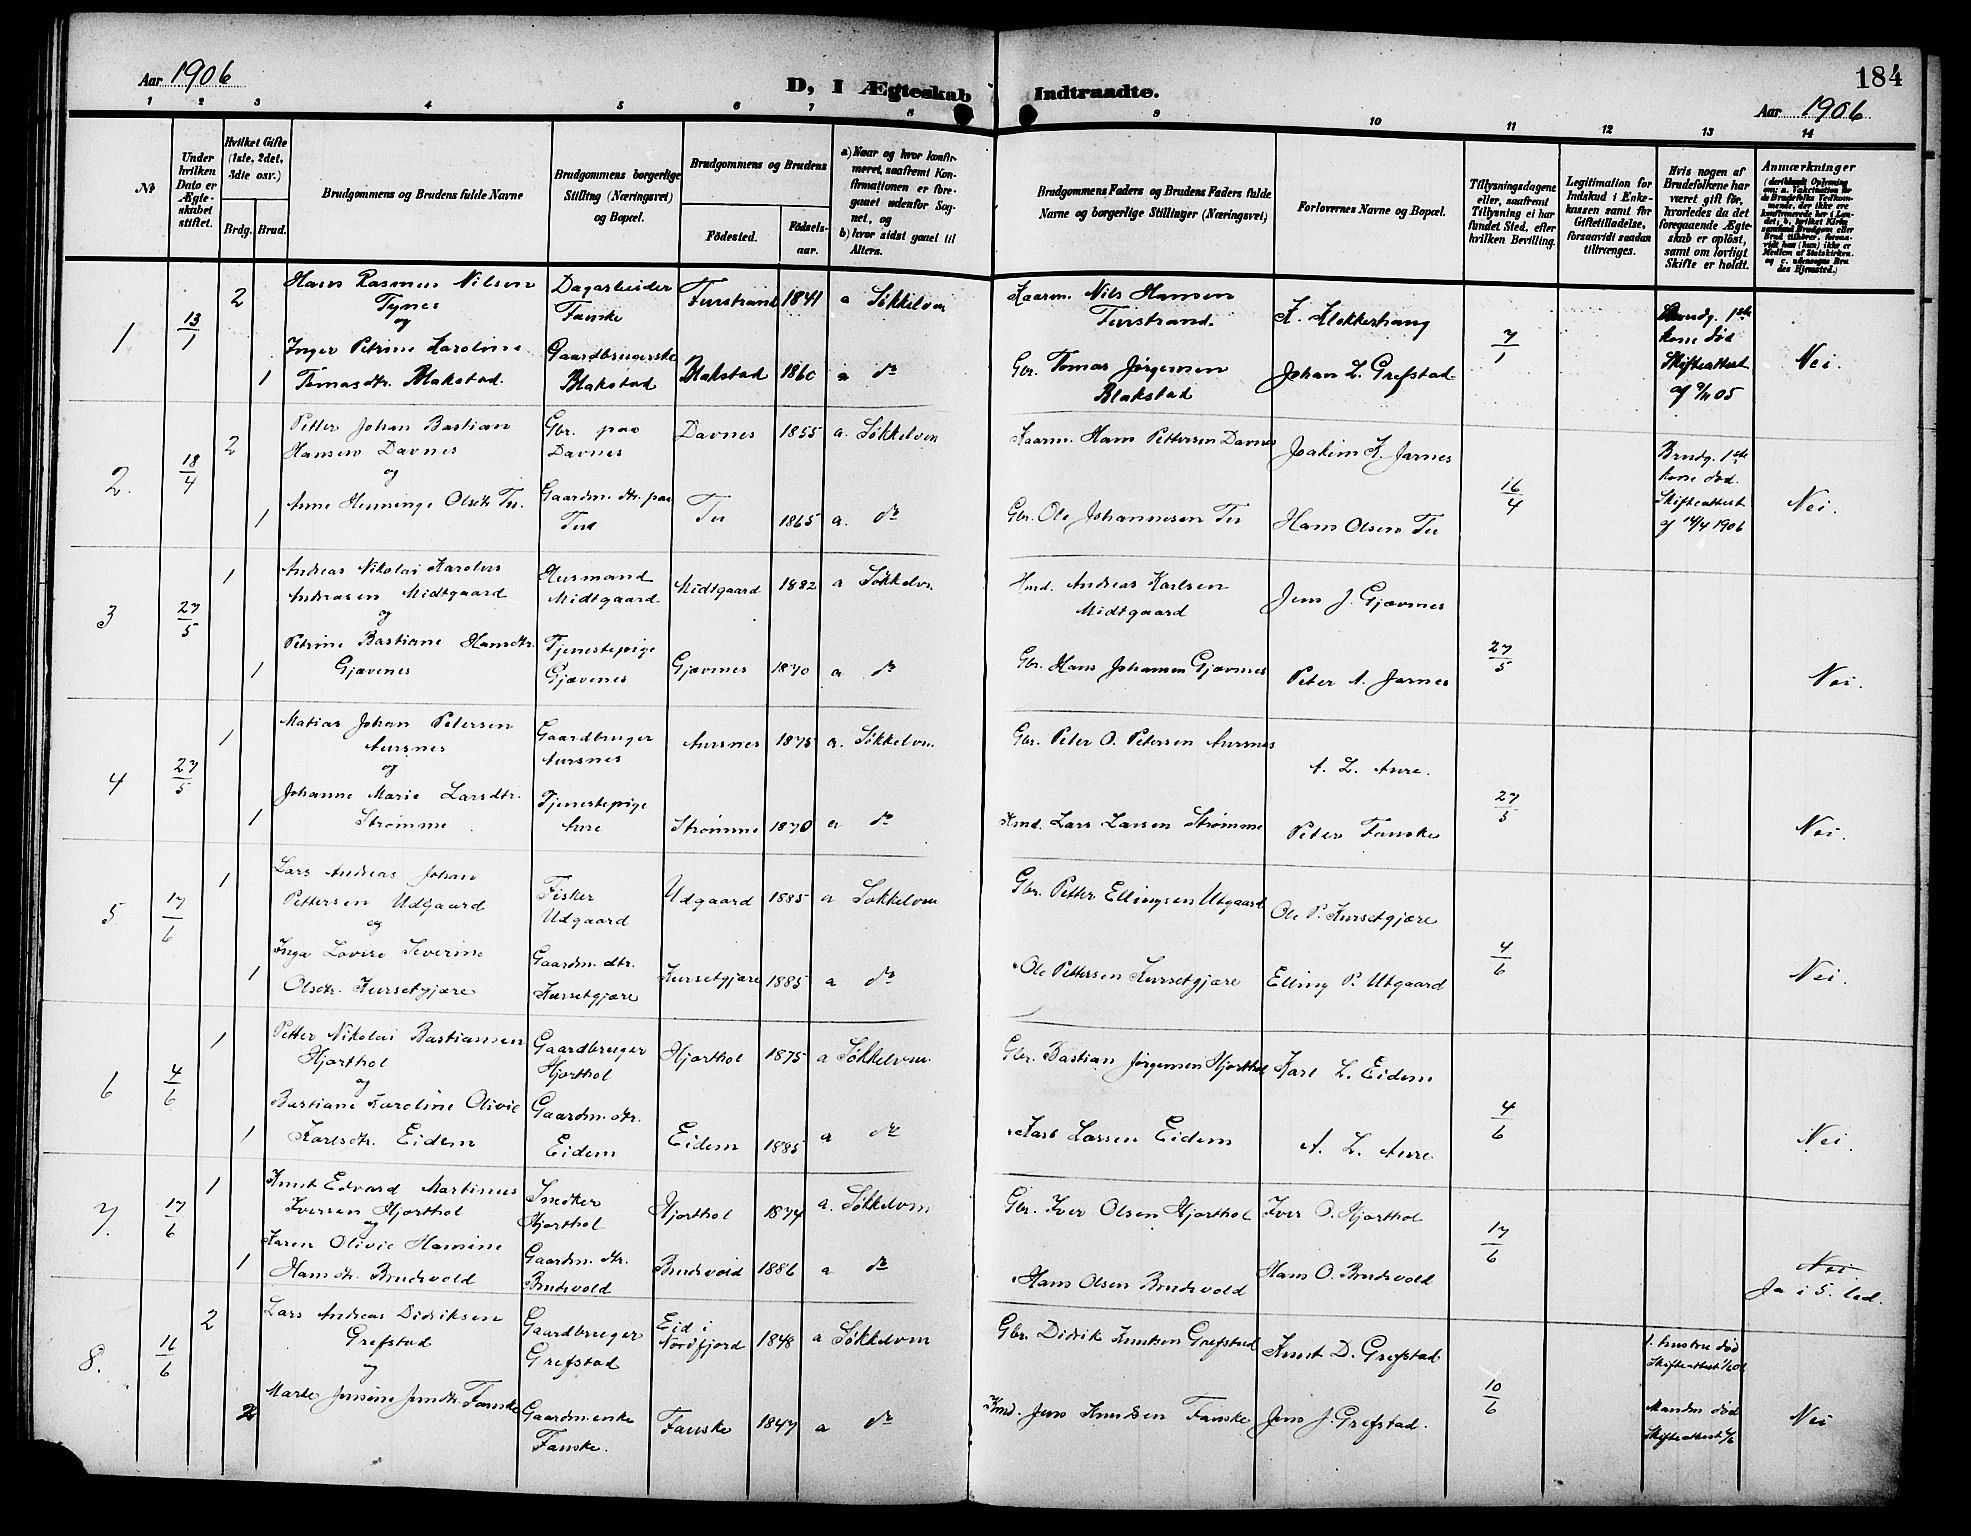 Aar 1906
D, I Ægteskab Indtraadte.
184
Aar 1906
1 2 3 4 5 6 7 8 9 10 11 12 13 14
№
Under hvilken Dato er Ægteskabet stiftet.
Hvilket Gifte (1ste, 2det, 3die osv.)
Brdg. Brud.
Brudgommens og Brudens fulde Navne
Brudgommens borgerlige Stilling (Næringsvei) og Bopæl.
Brudgommens og Brudens
Fødested.
Fødselsaar.
a) Naar og hvor konfirmeret, saafremt Konfirmationen er foregaaet udenfor Sognet, og
b) hvor sidst gaaet til Alters.
Brudgommens Faders og Brudens Faders fulde Navne og borgerlige Stillinger (Næringsvei)
Forlovernes Navne og Bopæl.
Tillysningsdagene eller, saafremt Tillysning ei har fundet Sted, efter hvilken Bevilling.
Legitimation for Indskud i Enkekassen samt for Giftetilladelse, forsaavidt saadan tiltrænges.
Hvis nogen af Brudefolkene har været gift før, hvorledes da det foregaaende Ægteskab er opløst, samt om lovligt Skifte er holdt.
Anmærkninger
1 13/1 2 Hans Rasmus Nilsen Dagarbeider Turstrand 1841 a Søkkelven Kaarm. Nils Hansen K. Klokkerhaug 7/1 Brudg. 1ste
Tynes Fauske Turstrand. kone død
og
1 Inger Petrine Karoline Gaardbrugerske Blakstad 1860 a do Gbr. Tomas Jørgensen Johan L. Grefstad Skifteattest Nei.
Tomasdtr. Blakstad. Blakstad Blakstad af 9/11 05
2. 18/4 2 Petter Johan Bastian Gbr. paa Davnes 1855 a. Søkkelven Kaarm. Hans Pettersen Davnes Joakim K. Jarnes 16/4 Brudg. 1ste
Hansen Davnes Davnes kone død.
og
1 Anne Henninge Olsdtr Tu. Gaardm. dtr. paa Tu 1865 a. do Gbr. Ole Johannesen Tu Hans Olsen Tu Skifteattest Nei.
af 14/4 1906
3 27/5 1 Andreas Nikolai Karolus Husmand Midtgaard 1882 a Søkkelven Hmd. Andreas Karlsen Jens J. Gjævnes 27/5
Andreasen Midtgaard Midtgaard Midtgaard
og
1 Petrine Bastiane Hansdtr. Tjenestepige Gjævnes 1870 a do Gbr. Hans Johansen Gjævnes Peter A. Jarnes Nei.
Gjævenes Gjævenes
4 27/5 1 Matias Johan Petersen Gaardbruger Aursnes 1875 a. Søkkelven. Gbr. Peter O. Petersen Aursnes A. L. Aure. 27/5
Aursnes Aursnes
og
1 Johanne Marie Larsdtr. Tjenestepige Strømme 1870 a do Hmd. Lars Larsen Strømme Peter Fauske Nei.
Strømme Aure
5. 17/6 1 Lars Andreas Johan Fisker Udgaard 1885 a Søkkelven Gbr. Petter Ellingsen Utgaard Ole P. Kursetgjære 4/6
Pettersen Udgaard Udgaard
og
1 Inga Lovise Severine Gaardm. dtr. Kursetgjære 1885 a do Ole Pettersen Kursetgjære Elling P. Utgaard Nei.
Olsdtr. Kursetgjære Kursetgjære
6 4/6 1 Petter Nikolai Bastiansen Gaardbruger Hjorthol 1875 a Søkkelven. Gbr. Bastian Jørgensen Hjorthol Karl L. Eidem 4/6
Hjorthol Hjorthol
og
1 Bastiane Karoline Olivie Gaardm. dtr. Eidem 1885 a do Karl Larsen Eidem A. L. Aure Nei.
Karlsdtr. Eidem Eidem
7. 17/6 1 Knut Edvard Martinus Snedker Hjorthol 1874 a. Søkkelven Gbr. Iver Olsen Hjorthol Iver O. Hjorthol 17/6
Iversen Hjorthol Hjorthol
og
1 Karen Olivie Hansine Gaardm. dtr. Brudevold 1886 a do Hans Olsen Brudevold Hans O. Brudevold Nei.
Hansdtr. Brudevold Brudevold Ja i 5. led.
8. 16/6 2 Lars Andreas Didriksen Gaardbruger Eid i Nordfjord 1848 a Søkkelven Gbr. Didrik Knutsen Grefstad Knut D. Grefstad 10/6 1. hustru død
Grefstad Grefstad Skifteattest
og
2 Marte Jensine Jensdtr. Fauske Gaardm. enke Fauske 1847 a do Hmd. Jens Knudsen Fauske Jens J. Grefstad. Manden død Nei
Fauske. Skifteattest